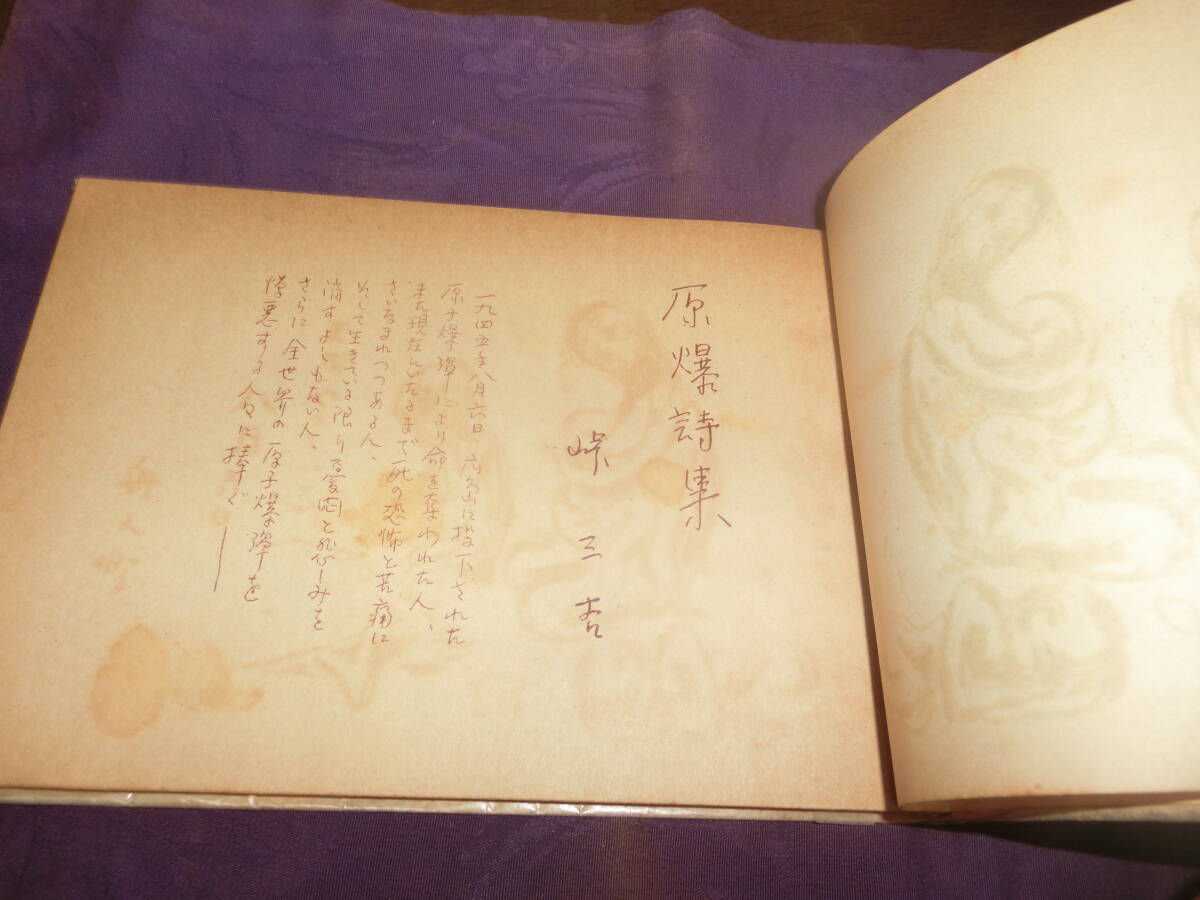 原爆詩集
峠三吉
一九四五年八月六日、広島に投下された
原子爆弾により命を奪われた人、
また現在にいたるまで死の恐怖と苦痛に
さいなまれつつある人、
そして生きている限り憂悶と悲しみを
消すよしもない人、
さらに全世界の原子爆弾を
憎悪する人々に捧ぐ――